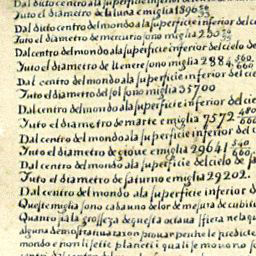 Dal dicto centro ala superficie inferior del
Tuto el diametro de la luna e miglia 1896
Dal dicto centro del mondo ala superficie inferior del c
Tuto el diametro de mercurio sono miglia 230
Dal centro del mondo ala superficie inferior del cielo de
Tuto el diametro de Uenere sono miglia 2884 560/660
Dal centro del mondo ala superficie inferior del cie
Tuto el diametto del sol sono miglia 35700
Dal centro del mondo ala superficie inferior del cie
Tuto el diametro de marte e miglia 7572 480/660
Dal centro del mondo ala superficie inferior del c
Tuto el diametro de gioue e miglia 29641 540/660
Dal centro del mondo ala superficie del cielo de sa
Tuto el diametro de saturno e miglia 29202.
Dal centro del mondo ala superficie inferior d
Queste miglia sono cadauno del or de mesura de cubiti
Quanto sia la grosseza de questa octaua spera nela qu
alguna demostratiua raxon prouar perche le predicte
mondo e non li sette planeti i quali se mouono s